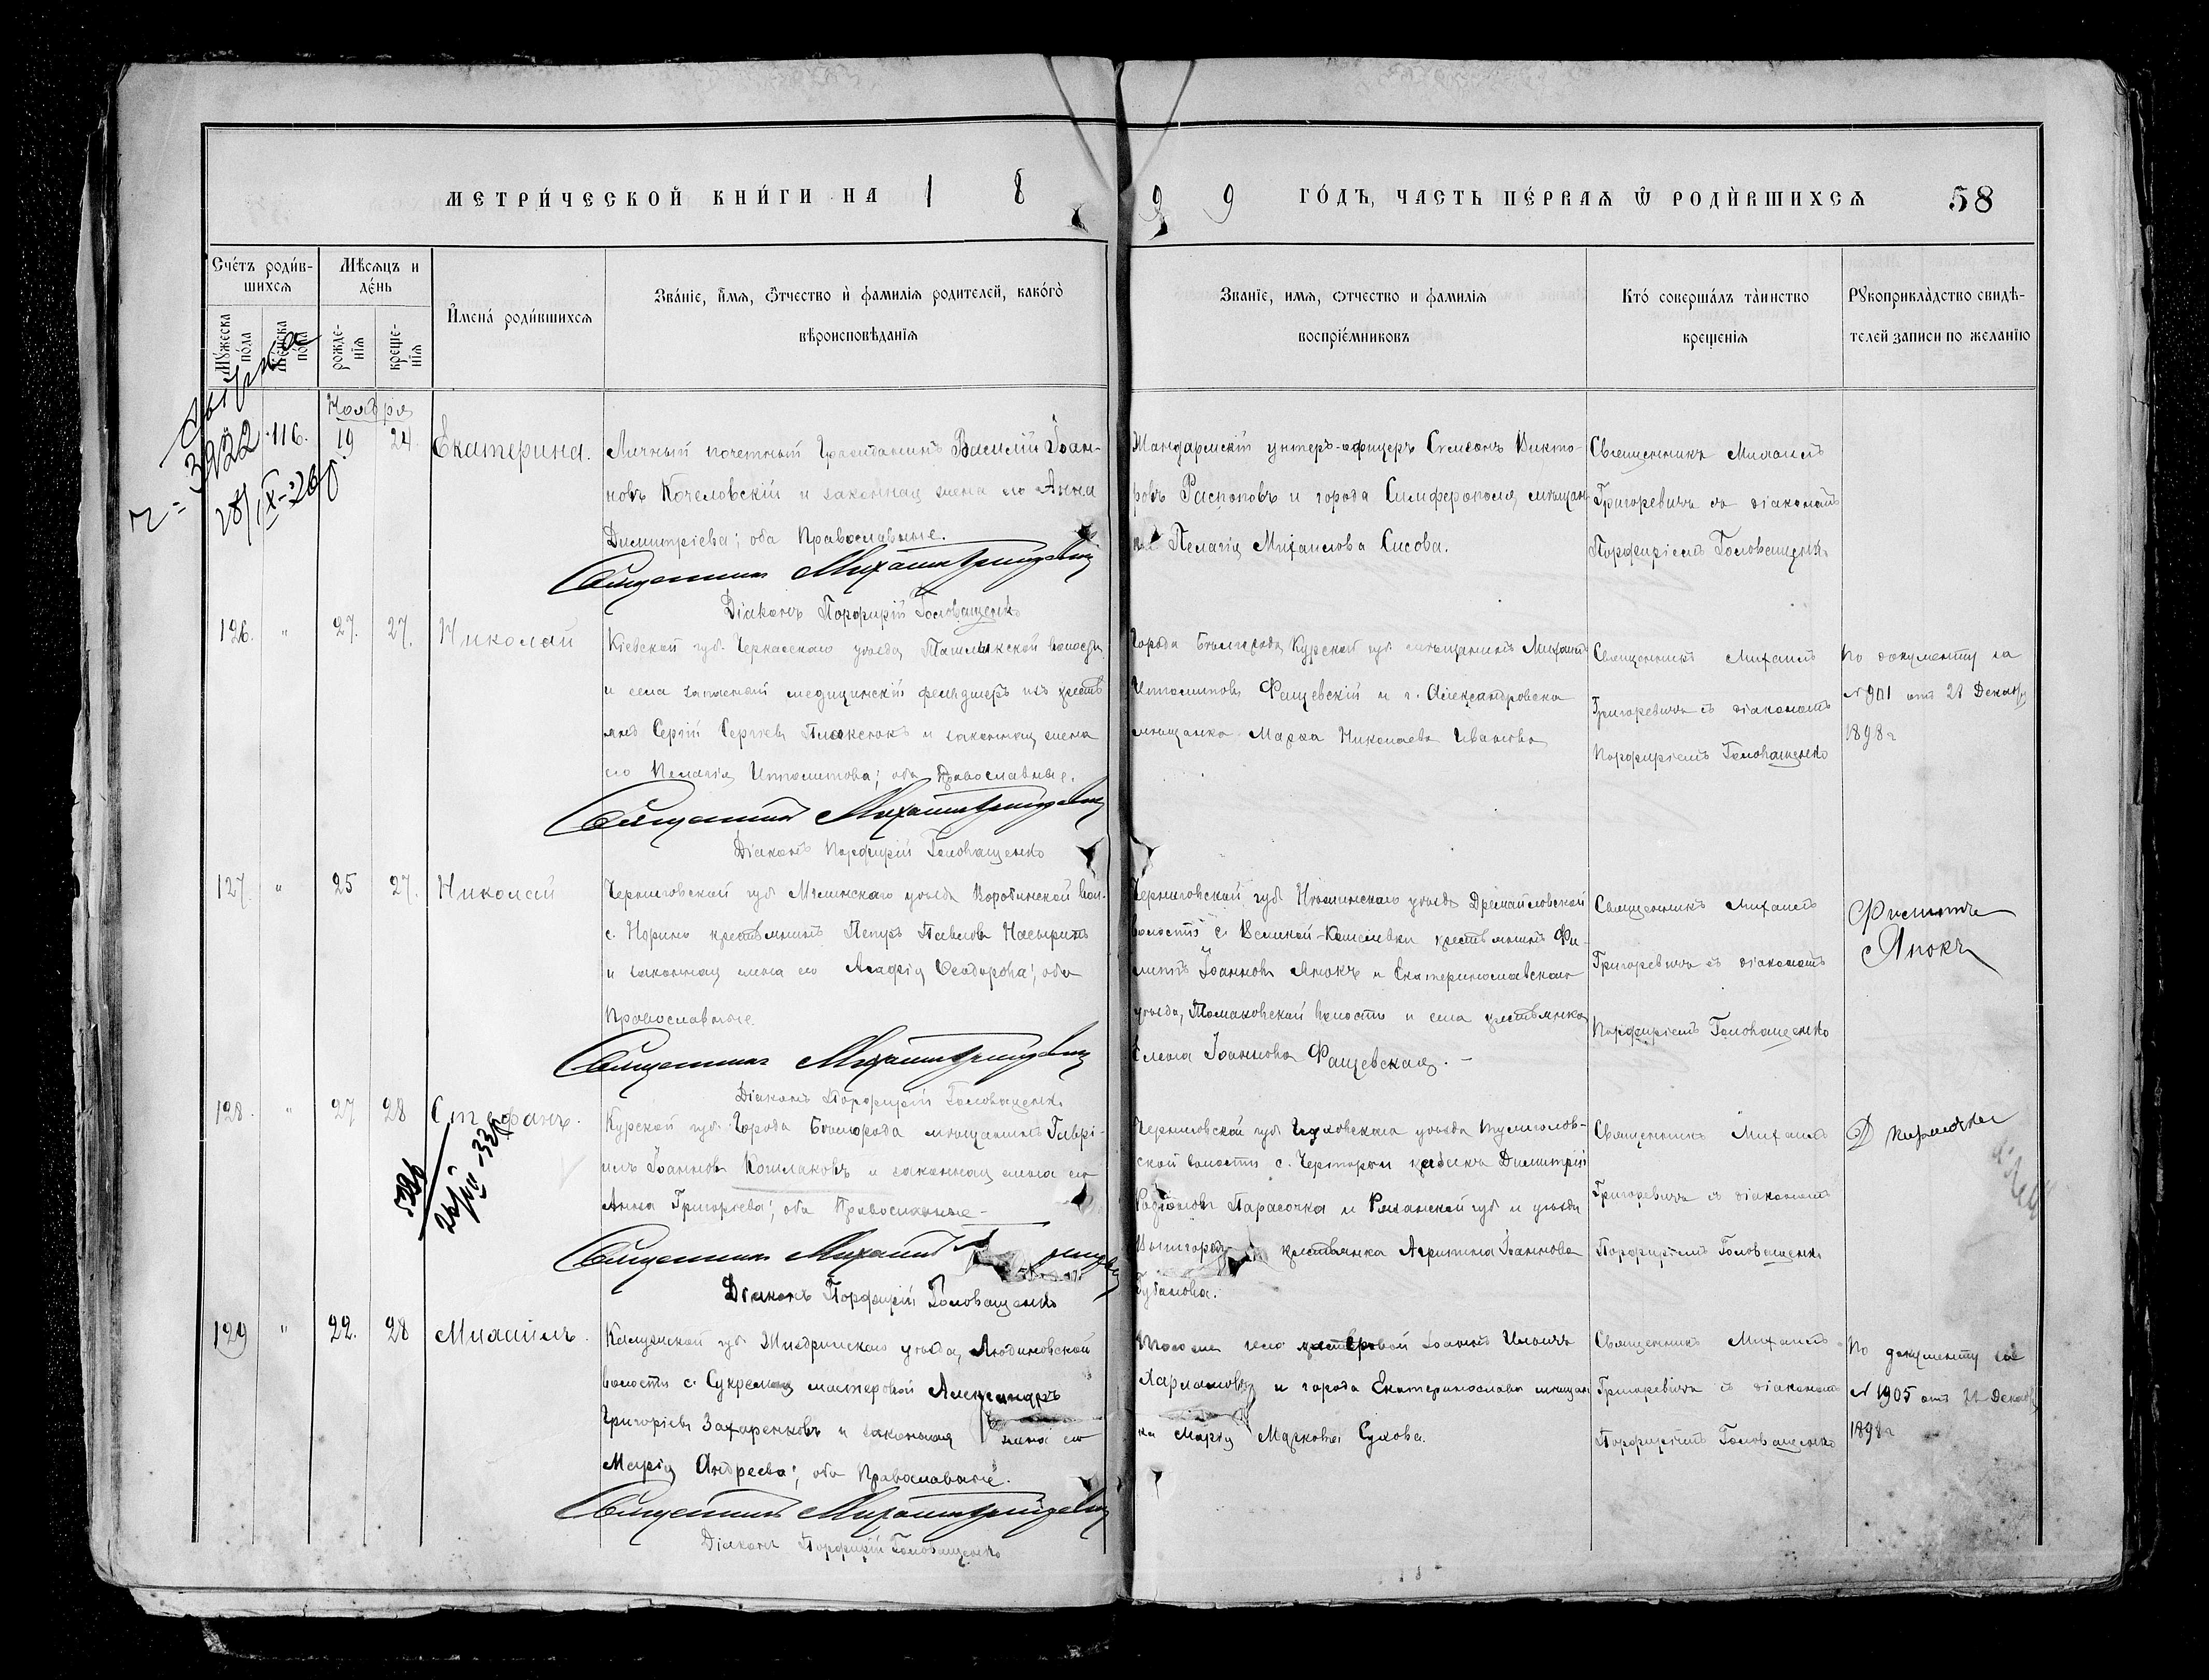 МЕТРИ́ЧЕСКОЙ КНИ́ГИ НА 1 8 9 9 ГО́ДЪ, ЧАСТЬ ПЕ́РВАЯ Ѡ РОДИ́ВШИХСЯ 58
Сче́тъ роди́в-
шихся
Мѣ́сяцъ и
де́нь
Мꙋ́жеска
по́ла
Же́нска
по́ла
рожде-
нія
креще-
нія
И҆мена́ роди́вшихся
Зва́ніе, и҆́мя, Ѻ҆́тчество и҆ фами́лія родителей, како́гѡ
вѣроисповѣ́данія
Званїе, имя, ѻтчество и фамилїя
воспрїе́мниковъ
Кто́ соверша́лъ та́инство
креще́нїя
Рꙋкоприкла́дство свидѣ-
телей записи по желанїю
Ноября
3922
28/IX-26
116. 19 24. Екатерина.
Личный почетный Гражданинъ Василій Іоан-
новъ Кочеловскій и законная жена его Анна
Димитріева; оба Православные.
Священникъ Михаилъ Григоревичъ
Діаконъ Порфирій Головащенко
Жандармскій унтеръ-офицеръ Симеонъ Викто-
ровъ Распоповъ и города Симферополя мѣщан-
ка Пелагія Михаилова Сисова.
Священникъ Михаилъ
Григоревичъ съ діакономъ
Порфиріемъ Головащенко
126. " 27. 27. Николай
Кіевской губ. Черкасскаго уѣзда, Ташлыкской волости
и села запасный медицинскій фельдшеръ изъ крестъ
янъ Сергій Сергіевъ и законная жена
его Пелагія Ипполитова; оба Православные.
Священникъ Михаилъ Григоревичъ
Діаконъ Порфирій Головащенко
Города Бѣлгорода, Курской губ. мѣщанинъ Михаилъ
Ипполитовъ Фащевскій и г. Александровска
мѣщанка Марѳа Николаева Иванова
Священникъ Михаилъ
Григоревичъ съ діакономъ
Порфиріемъ Головащенко
По документу за
№ 901 отъ 21 Декабря
1898 г
127. " 25 27. Николай
Черниговской губ. Мглинскаго уѣзда Воробинской вол.
с. Норино крестьянинъ Петръ Павловъ Насыринъ
и законная жена его Агафія Ѳеодорова; оба
Православные.
Священникъ Михаилъ Григоревичъ
Діаконъ Порфирій Головащенко
Черниговской губ Нѣжинскаго уѣзда Дремайловской
волости с. Великой-Кошелевки крестьянинъ Фи-
липпъ Іоанновъ Япокъ и Екатеринославскаго
уѣзда, Томаковской волости и села крестьянка
Елена Іоаннова Фащевская. -
Священникъ Михаилъ
Григоревичъ съ діакономъ
Порфиріемъ Головащенко
Филиппъ
Япокъ
128. " 27 28 Стефанъ.
Курской губ. Города Бѣлгорода мѣщанинъ Гаврі-
илъ Іоанновъ Кошлаковъ и законная жена его
Анна Григоріева; оба Православные -
Священникъ Михаилъ Григоревичъ
Діаконъ Порфирій Головащенко
Черниговской губ Глуховскаго уѣзда Тулиголов-
ской волости с. Черторыи казакъ Димитрій
Родіоновъ Парасочка и Рязанской губ и уѣзда
крестьянка Агрипина Іоаннова
Священникъ Михаилъ
Григоревичъ съ діакономъ
Порфиріемъ Головащенко
129 " 22. 28 Михаилъ.
Калужской губ Жиздринскаго уѣзда, Людиновской
волости с. Сукремля мастеровой Александръ
Григоріевъ Захаренковъ и законная жена его
Марія Андреева; оба Православные.
Священникъ Михаилъ Григоревичъ
Діаконъ Порфирій Головащенко
мастеровой Іоаннъ
и города Екатеринослава мѣщан
ка Марія Маркова Сухова.
Священникъ Михаилъ
Григоревичъ съ діакономъ
Порфиріемъ Головащенко
По документу за
№ 1905 отъ 22 Декабря
1898 г